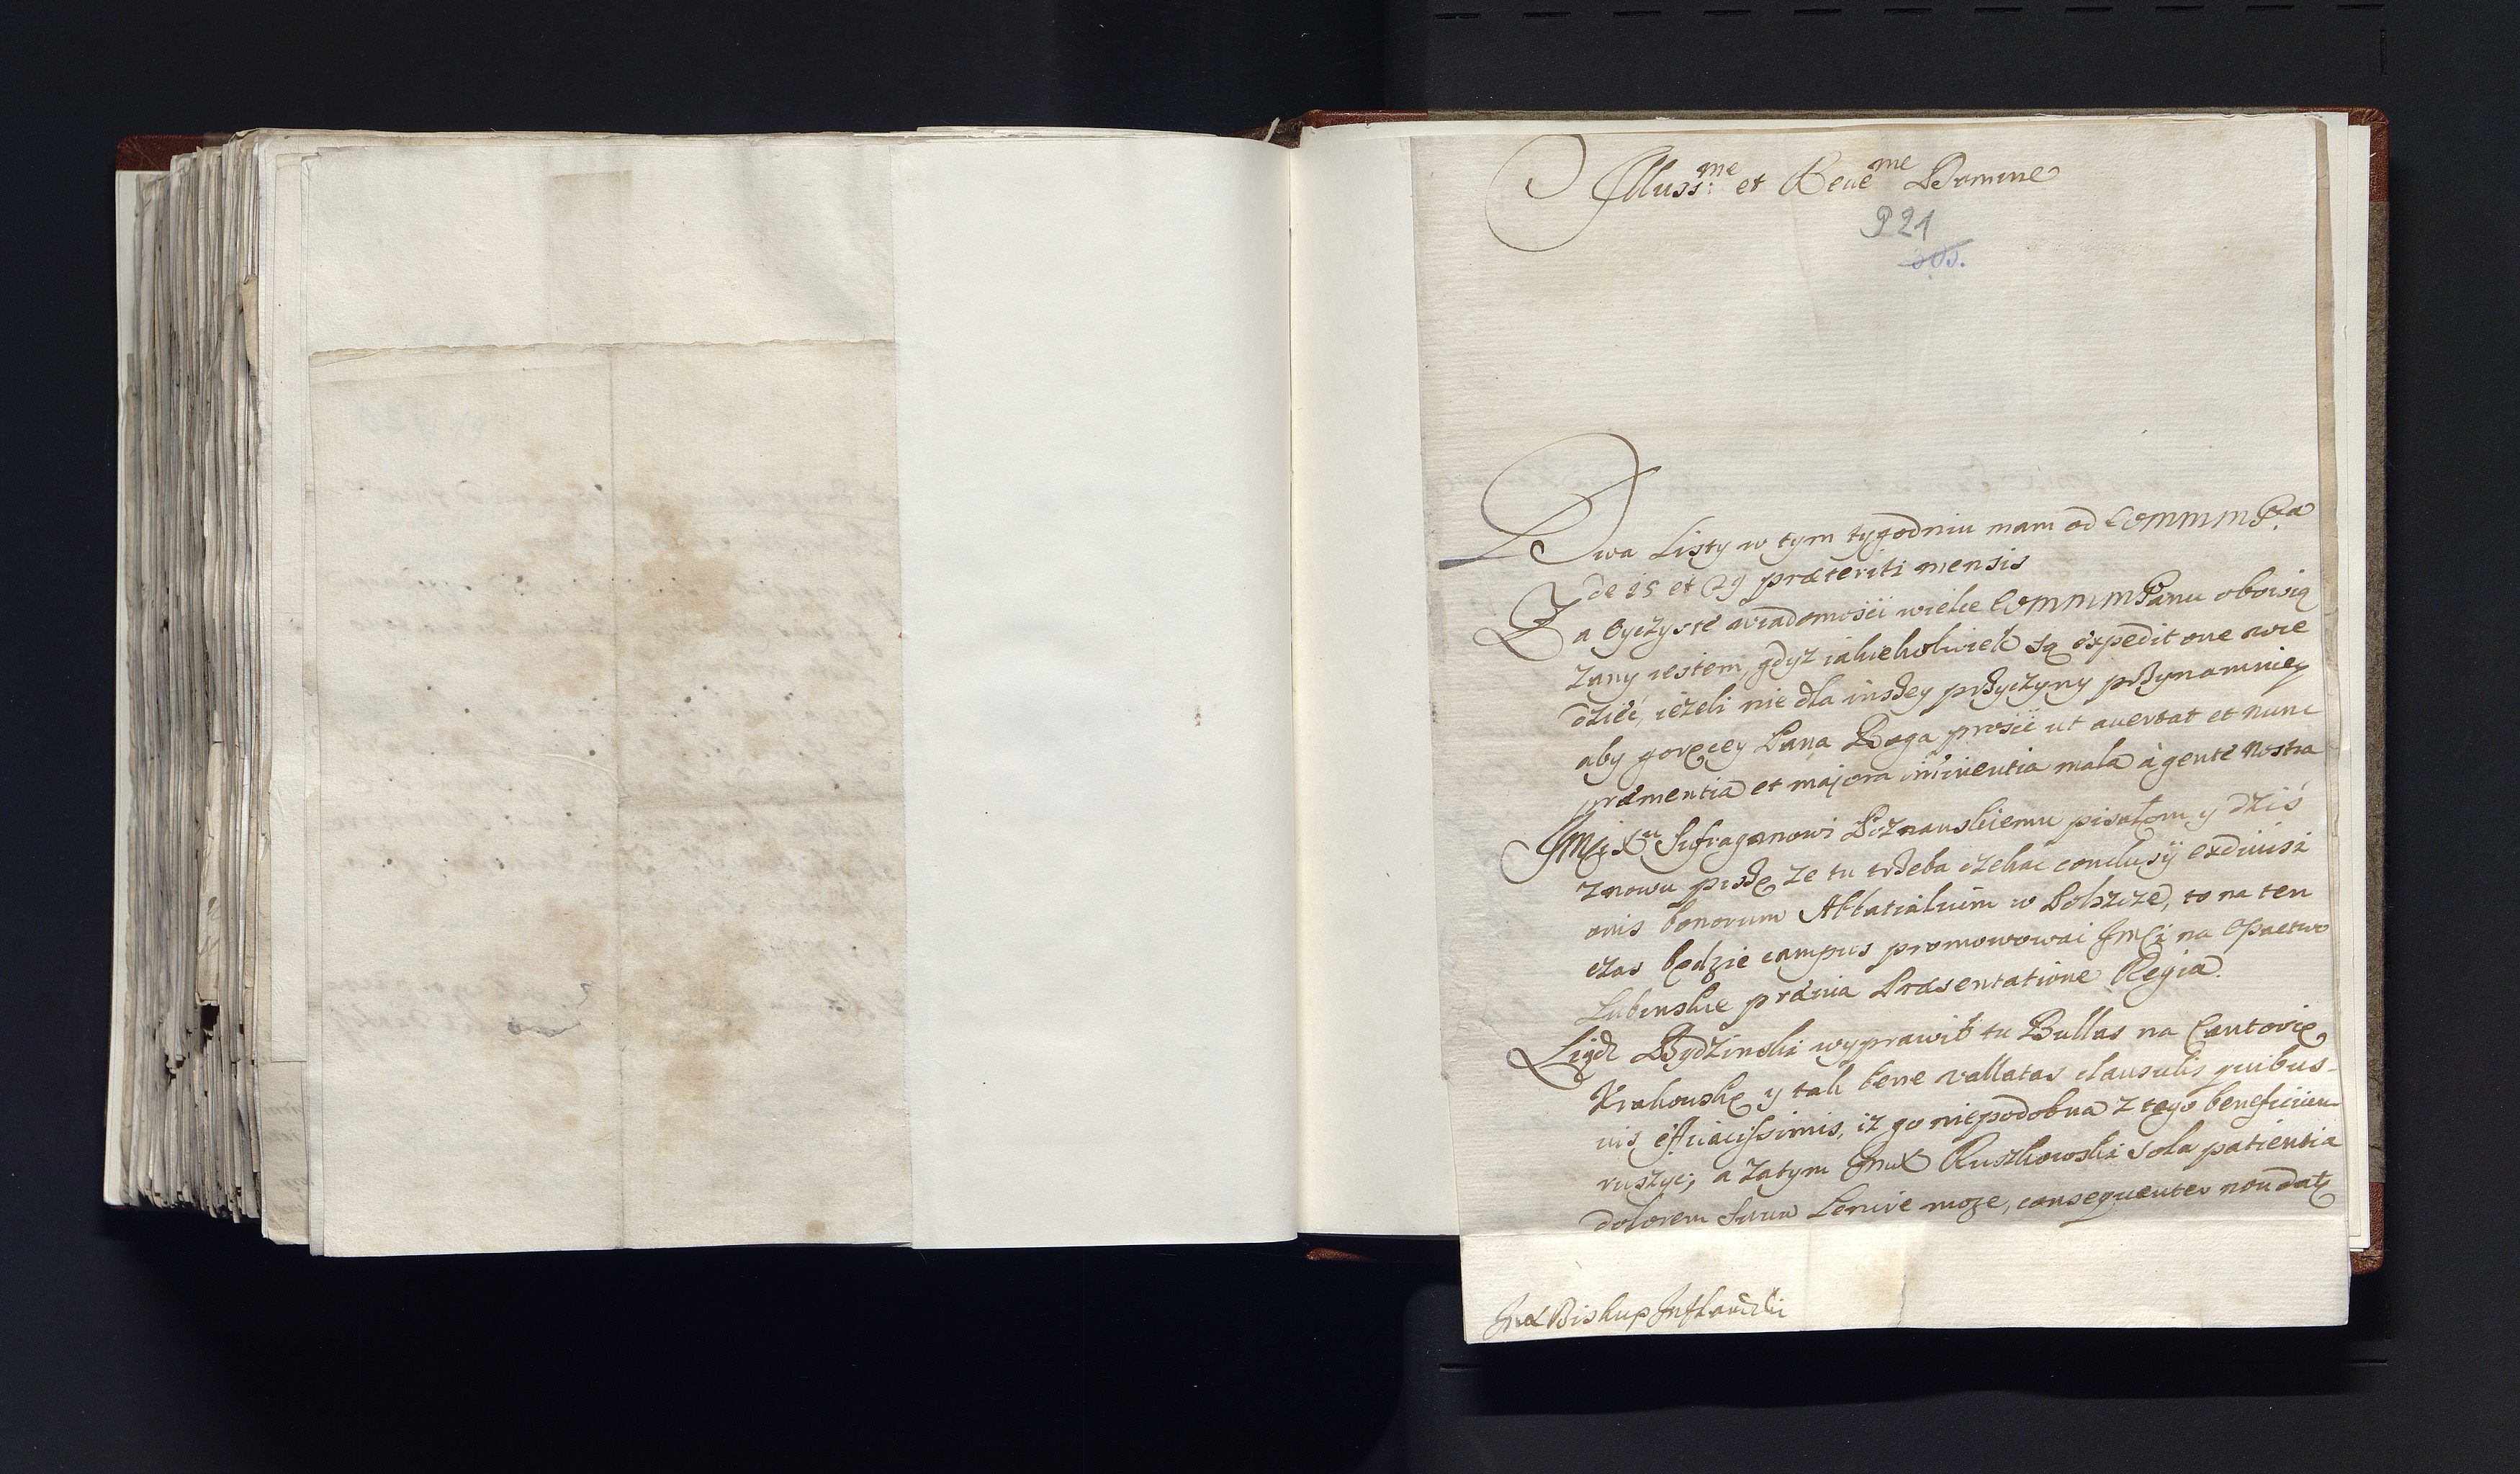 Illuss:me et Reueme Domine
921
305.
Dwa Listy w tym tygodniu mam od WMMMPa
de 15 et 29 præteriti mensis
Za Oyczyste wiadomości wielce WMMMPanu obowią
zany iestem, gdyz iakiekolwiek są expedit one wie
dzieć, ieżeli nie dla inszey przyczyny przynamniey
aby goręcey Pana Boga prosić ut avertat et nunc
præmentia et majora iminentia mala à gente nostra
JMći Xu Sufraganowi Poznanskiemu pisałem y dziś
znowu piszę ze tu trzeba czekac conclusÿ exdivisi
onis bonorum Abbatialium w Polszcze, to na ten
czas będzie campus promowowac JMći na Opactwo
Lubinskie prævia Præsentatione Regia.
Xiądz Bydzinski wyprawił tu Bullas na Cantorię
Krakowską y tak bene vallatas clausulis quibus-
vis efficacissimis, iz go niepodobna z tego beneficium
ruszyc; a zatym JmX Ruszkowski sola patientia
dolorem suum Lenire moze, consequenter non dat
JmX Biskup Inflantski